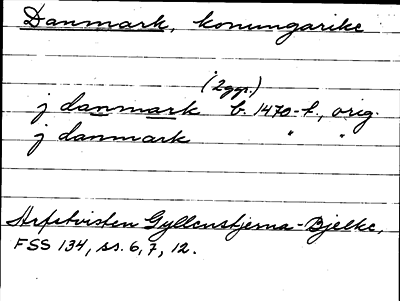 Danmark, konungarike
(2 ggr.)
j danmark b. 1470-t., orig.
j danmark " "
Arfstvisten Gyllenstjerna - Bjelke,
FSS 134, ss. 6, 7, 12.